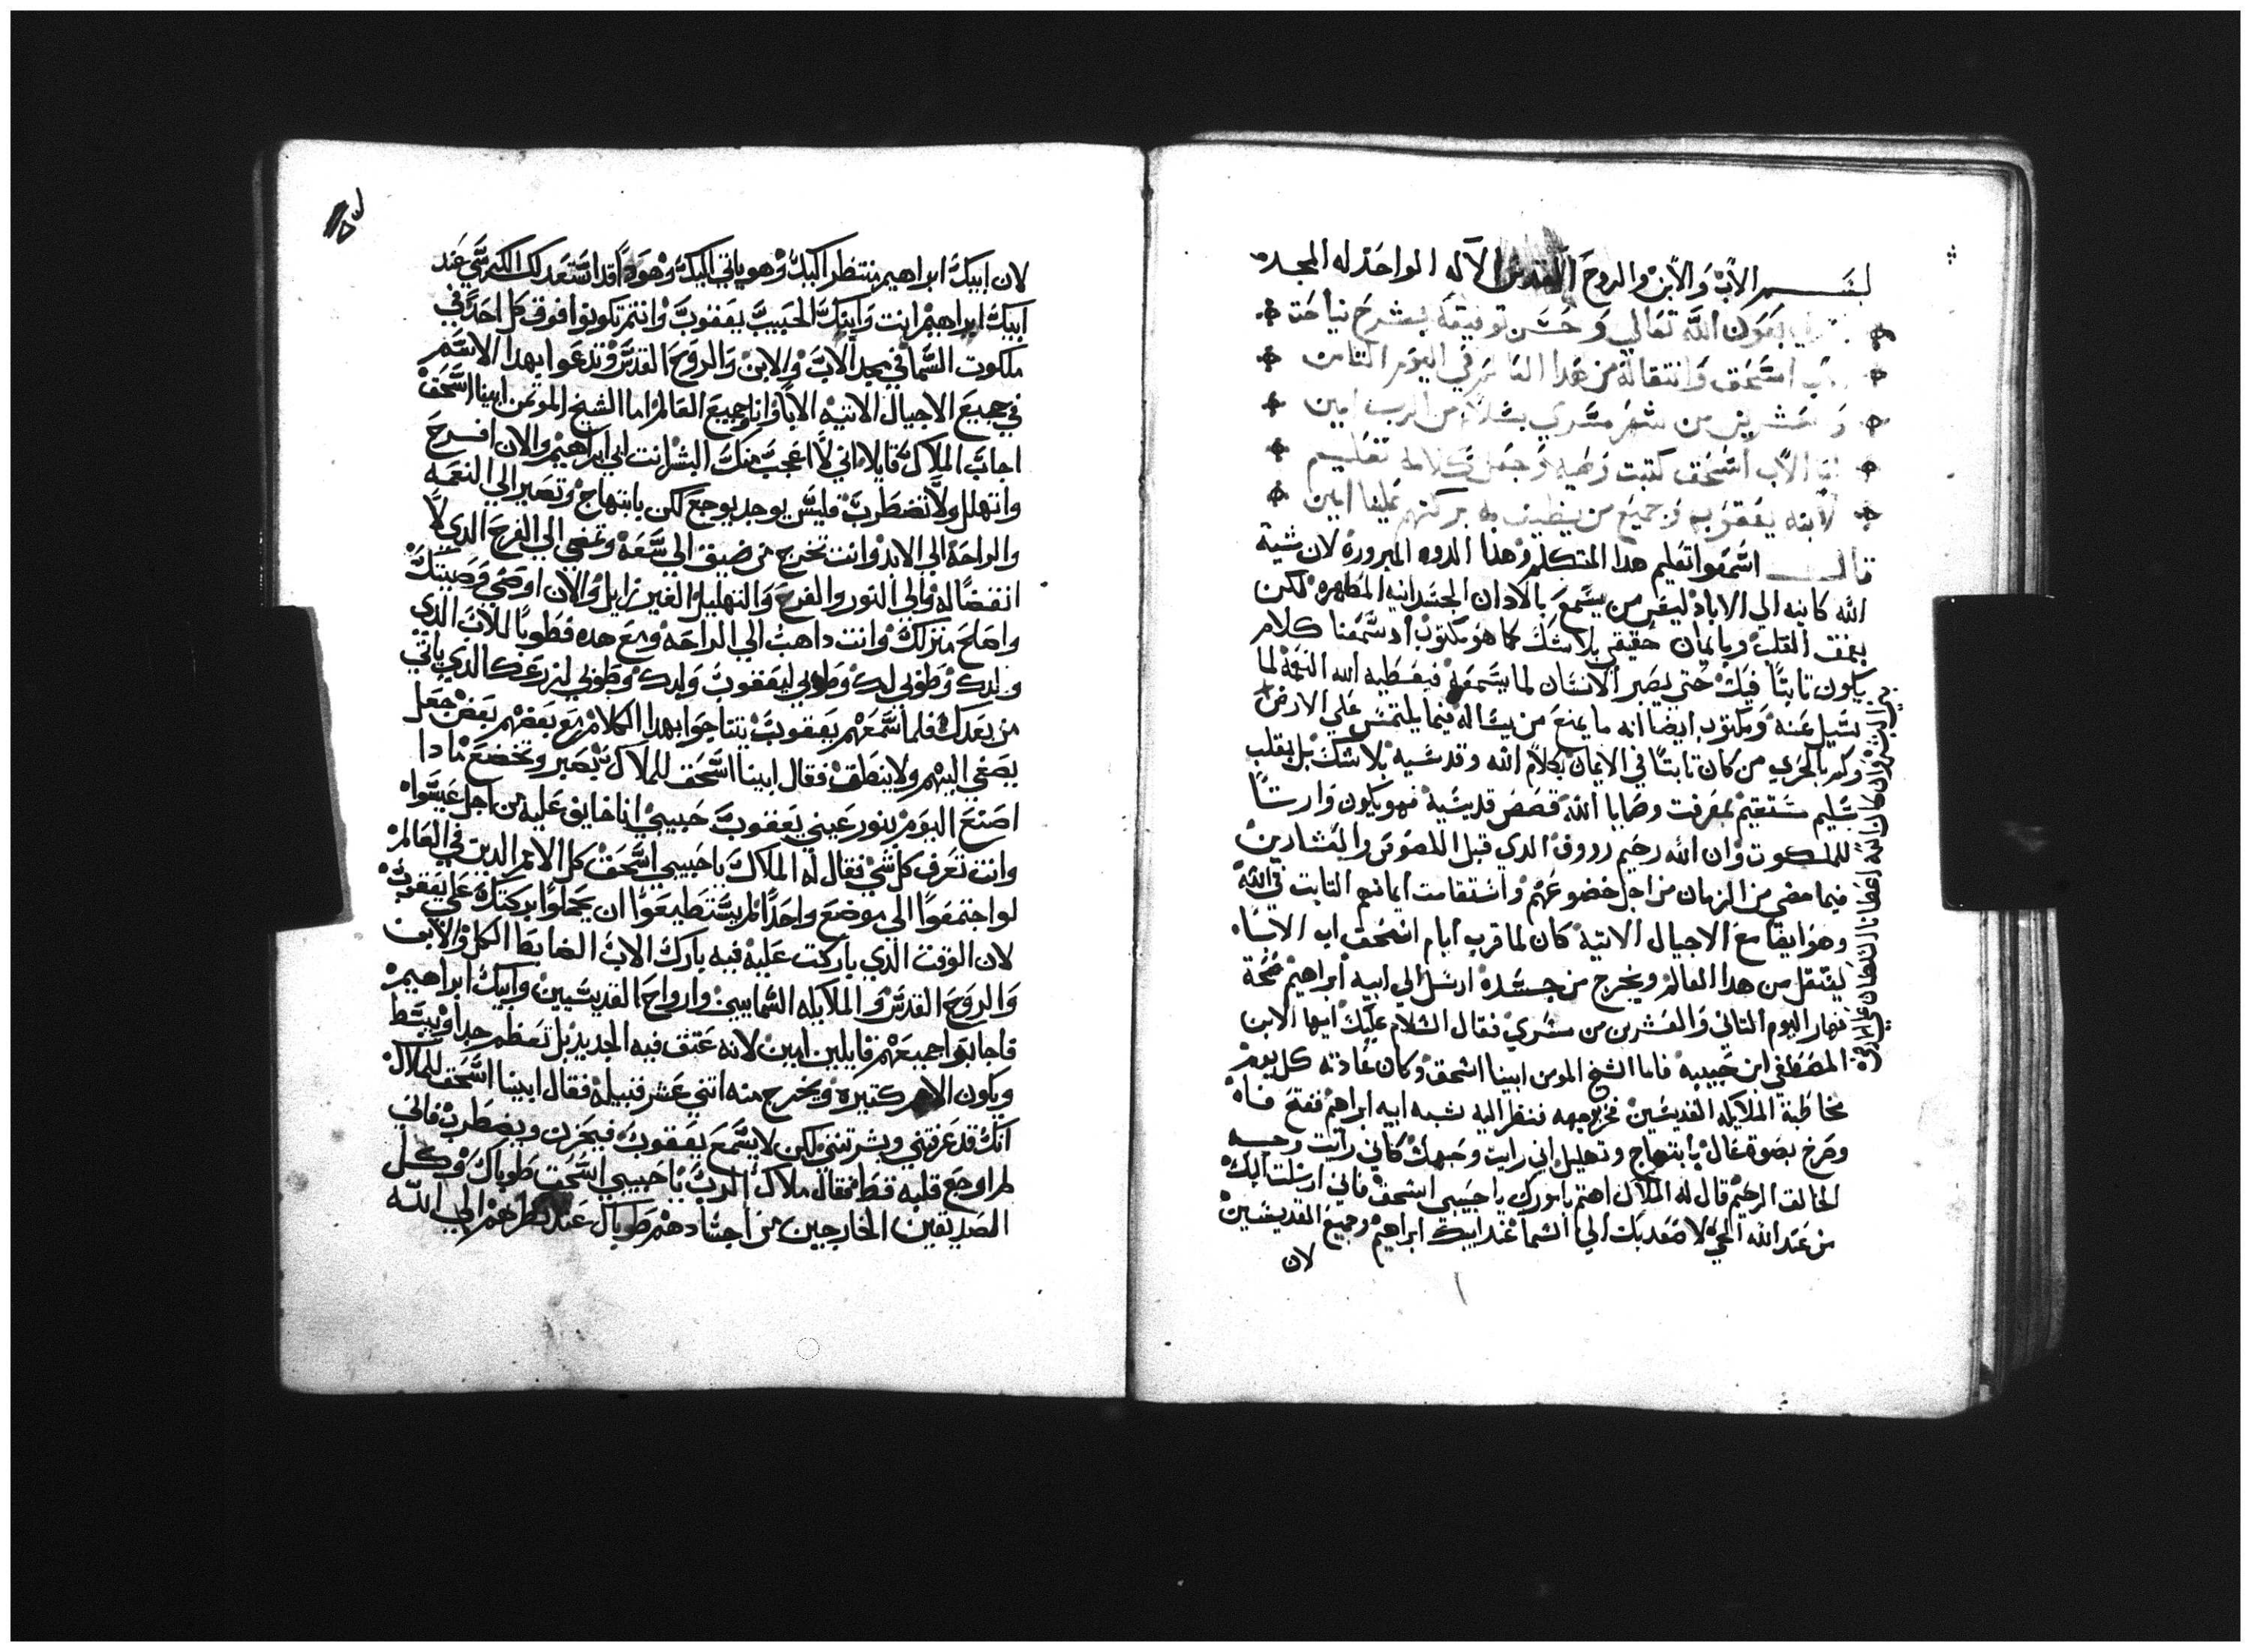 بسم الاب والابن والروح القدس الاله الواحد له المجد
بعون الله تعالي وحسن توفيقه بشرح نياحة
اسحق وانتقاله من هدا العالم في اليوم التامن
وعشرين من شهر مسري بسلام من الرب امين
الاب اسحق كتبت وصيه وجعل كلامه تعليم
لابنه يعقوب وجميع من يطيف به بركتهم علينا امين
قال اسمعوا تعليم هدا المتكلم وهذا الدوه المبروره لان شية
الله كاينه الي الاباد ليس من يسمع بالادان الجسدانيه الظاهره لكن
بعمق القلب وبايمان حقيقي بلا شك كما هو مكتوب اد سمعنا كلام
يكون تابتا فيك حتي يصير الانسان لما يسمعه فيعطيه الله النعمة لما
يسيل عنه ومكتوب ايضا انه ما يمنع من يساله فيما يلتمس علي الارض
وكم بالحري من كان تابتا في الايمان بكلام الله وقدسيه بلا شك بل بقلب
سليم مستقيم لمعرفت وصايا الله قصص قديسيه فهو يكون وارتا
للملكوت وان الله رحيم رووف الدي قبل اللصوص والعشارين
فيما مضي من الزمان من اجل خضوعهم واستقامت ايمانهم التابت في الله
وهو ايضا مع الاجيال الاتيه كان لما قرب ايام اسحق اب الابا
ينتقل من هدا العالم ويخرج من جسده ارسل الي ابيه ابراهيم صحة
نهار اليوم التاني والعشرين من مسري فقال السلام عليك ايها الابن
المصطفي ابن حبيبه فاما الشيخ المومن ابينا اسحق وكان عادته كل يوم
مخاطبة الملايكه القديسين فخر بوجهه فنظر اليه شبه ابيه ابراهيم ففتح فاه
وصرخ بصوة عال بابتهاج وتهليل اني رايت وجهك كاني رايت وجه
الخالق الرحيم قال له الملاك اهتم يا نوري يا حبيبي اسحق فاني ارسلت اليك
من عند الله الحي لاصعد بك الي السما عند ابيك ابراهيم وجميع القديسين
لان
لان ابيك ابراهيم ينتظر اليك وهو ياتي اليك وهودا قد استعد لك الكرسي عند
ابيك ابراهيم انت وابنك الحبيب يعقوب وانتم تكونوا فوق كل احد في
ملكوت السما في مجد الاب والابن والروح القدس وتدعوا بهدا الاسم
في جميع الاجيال الاتيه الابا وانا وجميع العالم اما الشيخ الموتمن ابينا اسحق
اجاب الملاك قايلا اني لا اعجب منك البشر انت ابي ابراهيم والان افرح
وانهلل ولا تضطرب فليس يوجد يوجع لكن بابتهاج وتصير الي النعمه
والراحة الي الابد وانت تخرج من ضيق الي سعه وتمضي الي الفرح الدي لا
انقضا له والي النور والفرح والتهليل الغير زايل والان اوصي وصيتك
واصلح منزلك وانت داهب الي الراحه ومع هده فطوبا للاب الدي
ولدك وطوبي لك وطوبي ليعقوب ولدك وطوبي لزرعك الدي ياتي
من بعدك فلما سمعهم يعقوب يتناجوا بهدا الكلام مع بعضهم بعض جعل
يصغي اليهم ولا ينطق فقال ابينا اسحق للملاك بتصير وتخضع مادا
اصنع اليوم بنور عيني يعقوب حبيبي انا خايف عليه من اجل عيسوا
وانت تعرف كل شي فقال له الملاك يا حبيبي اسحق كل الامم الدين في العالم
لو اجتمعوا الي موضع واحدا لم يستطيعوا ان يحلوا بركتك علي يعقوب
لان الوقت الدي باركت عليه فيه بارك الاب الضابط الكل والابن
والروح القدس والملايكه السماييين وارواح القديسيين وابيك ابراهيم
فاجابوا جميعهم قايلين امين لانه عتق فيه الحديد بل تعظم جدا وينبسط
ويكون لامم كتيرة ويخرج منه اتني عشر قبيله فقال ابينا اسحق للملاك
انك قد عرفتني وبشرتني لكن لا يسمع يعقوب فيحزن ويضطرب فاني
لم اوجع قلبه قط فقال ملاك الرب يا حبيبي اسحق طوباك وكل
الصديقين الخارجين من اجسادهم طوباك عند نطرهم الي الله